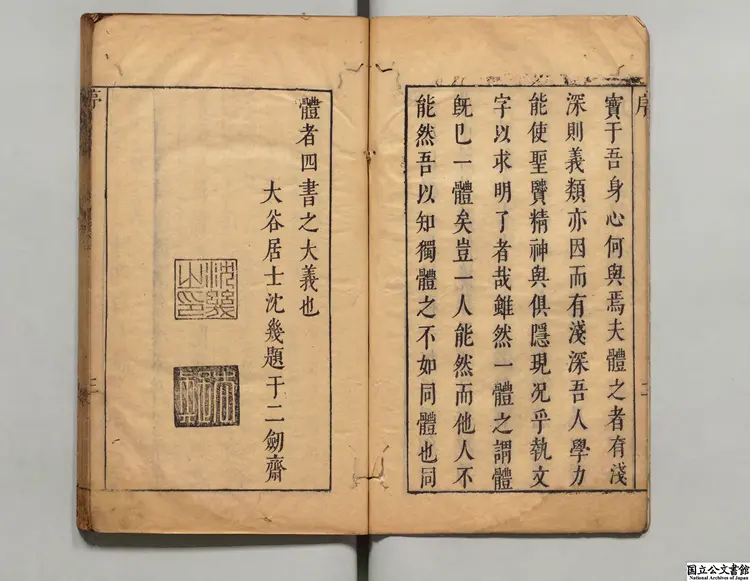 序
寳于吾身心何與焉夫體之者有淺
深則義類亦因而有淺深吾人學力
能使聖贒精神與俱隱現况乎執文
字以求明了者哉雖然一體之謂體
旣巳一體矣豈一人能然而他人不
能然吾以知獨體之不如同體也同
體者四書之大義也
大谷居士沈幾題于二劒齋
序
三
国立公文書館
National Archives of Japan